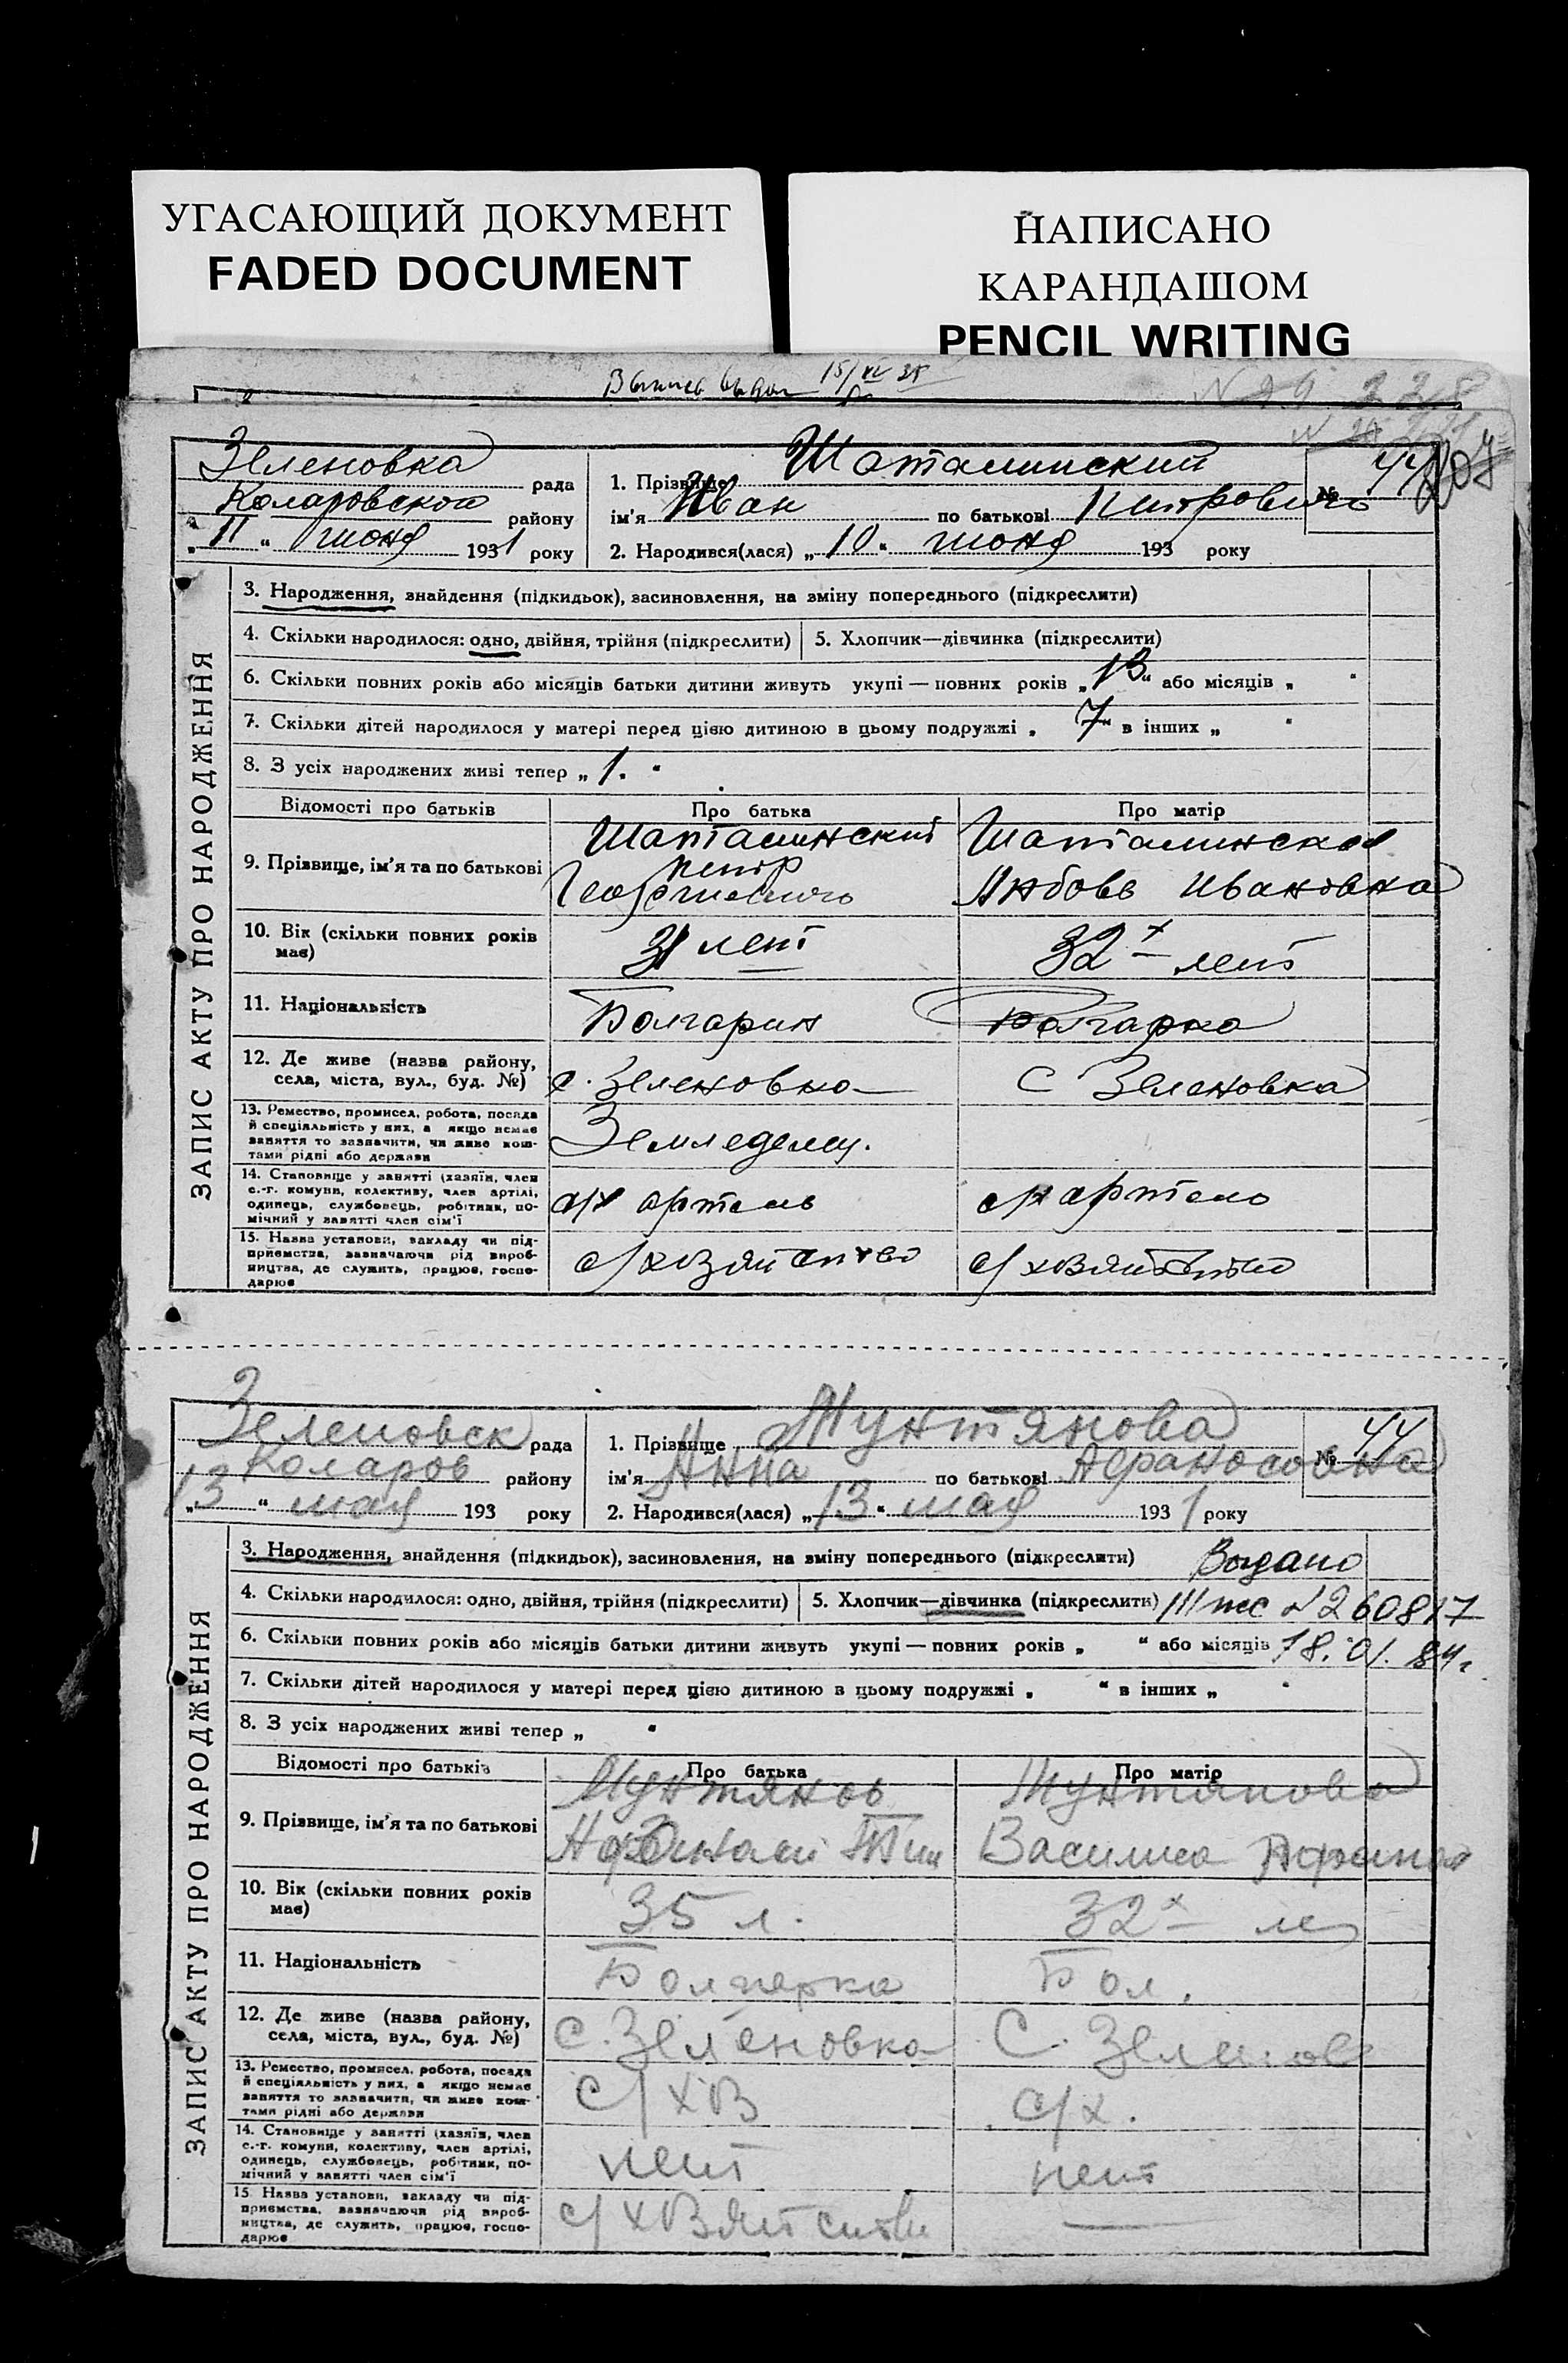 УГАСАЮЩИЙ ДОКУМЕНТ
FADED DOCUMENT
НАПИСАНО
КАРАНДАШОМ
PENCIL WRITING
15/VI
228
Зеленовка рада
Коларовской району
„11“ июня 1931 року
1. Прізвище Шаталинский
ім'я Иван по батькові Питрович
№ 44
2. Народився(лася) „10“ июня 193 року
ЗАПИС АКТУ ПРО НАРОДЖЕННЯ
3. Народження, знайдення (підкидьок), засиновлення, на зміну попереднього (підкреслити)
4. Скільки народилося: одно, двійня, трійня (підкреслити) 5. Хлопчик—дівчинка (підкреслити)
6. Скільки повних років або місяців батьки дитини живуть укупі — повних років „13“ або місяців „ “
7. Скільки дітей народилося у матері перед цією дитиною в цьому подружжі „7“ в інших „ “
8. З усіх народжених живі тепер „1.“
Відомості про батьків Про батька Про матір
9. Прізвище, ім'я та по батькові
Шаталинский Петр Георгиевич
Шаталинская Любовь Ивановна
10. Вік (скільки повних років має)
31 лет
32х лет
11. Національність
Болгарин
Болгарка
12. Де живе (назва району, села, міста, вул., буд. №)
с. Зеленовка
с Зеленовка
13. Ремество, промисел, робота, посада й спеціальність у них, а якщо немає заняття то зазначити, чи живе коштами рідні або держави
Земледелец.
14. Становище у занятті (хазяїн, член с.-г. комуни, колективу, член артілі, одинець, службовець, робітник, помічний у занятті член сім'ї
с/х артель
с/х артель
15. Назва установи, закладу чи підприємства, зазначаючи рід виробництва, де служить, працює, господарює
с/хозяйство
с/хозяйство
Зеленовск рада
Коларов району
„13“ мая 193 року
1. Прізвище Мунтянова
ім'я Анна по батькові Афанасовна
№ 44
2. Народився(лася) „13“ мая 1931 року
ЗАПИС АКТУ ПРО НАРОДЖЕННЯ
3. Народження, знайдення (підкидьок), засиновлення, на зміну попереднього (підкреслити) Выдано
4. Скільки народилося: одно, двійня, трійня (підкреслити) 5. Хлопчик—дівчинка (підкреслити) № 260817
6. Скільки повних років або місяців батьки дитини живуть укупі — повних років „ “ або місяців 18.01.84г
7. Скільки дітей народилося у матері перед цією дитиною в цьому подружжі „ “ в інших „ “
8. З усіх народжених живі тепер „ “
Відомості про батьків Про батька Про матір
9. Прізвище, ім'я та по батькові
Мунтянов
Мунтянова Василиса
10. Вік (скільки повних років має)
35 л.
32х ле
11. Національність
Болгарка
Бол.
12. Де живе (назва району, села, міста, вул., буд. №)
с. Зеленовка
С. Зеленов
13. Ремество, промисел, робота, посада й спеціальність у них, а якщо немає заняття то зазначити, чи живе коштами рідні або держави
с/хоз
с/х.
14. Становище у занятті (хазяїн, член с.-г. комуни, колективу, член артілі, одинець, службовець, робітник, помічний у занятті член сім'ї
нет
нет
15 Назва установи, закладу чи підприємства, зазначаючи рід виробництва, де служить, працює, господарює
с/хозяйстве